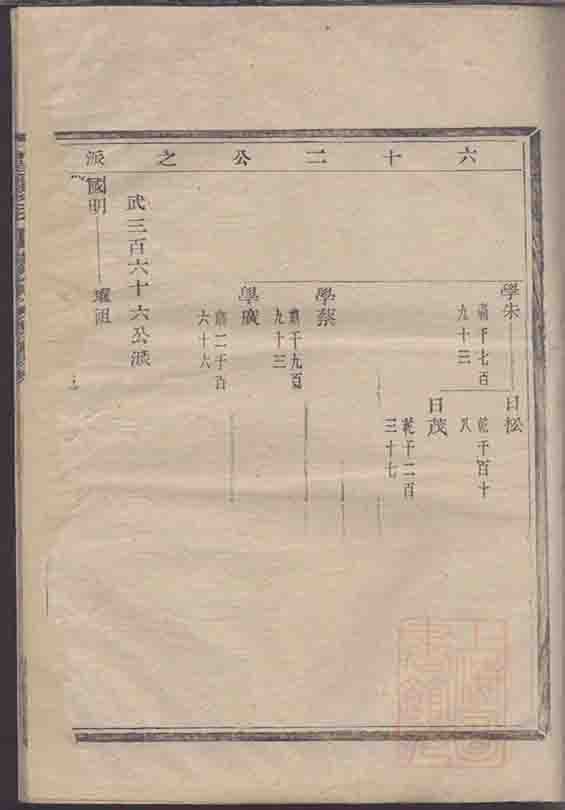 六十二公之派
學朱
□千七百
九十三
日松
乾千百十
八
日茂
乾千二百
三十七
學蔡
千九百
九十三
學廣
二千百
六十六
武三百六十六公派
國明
祖
上海圖書館藏